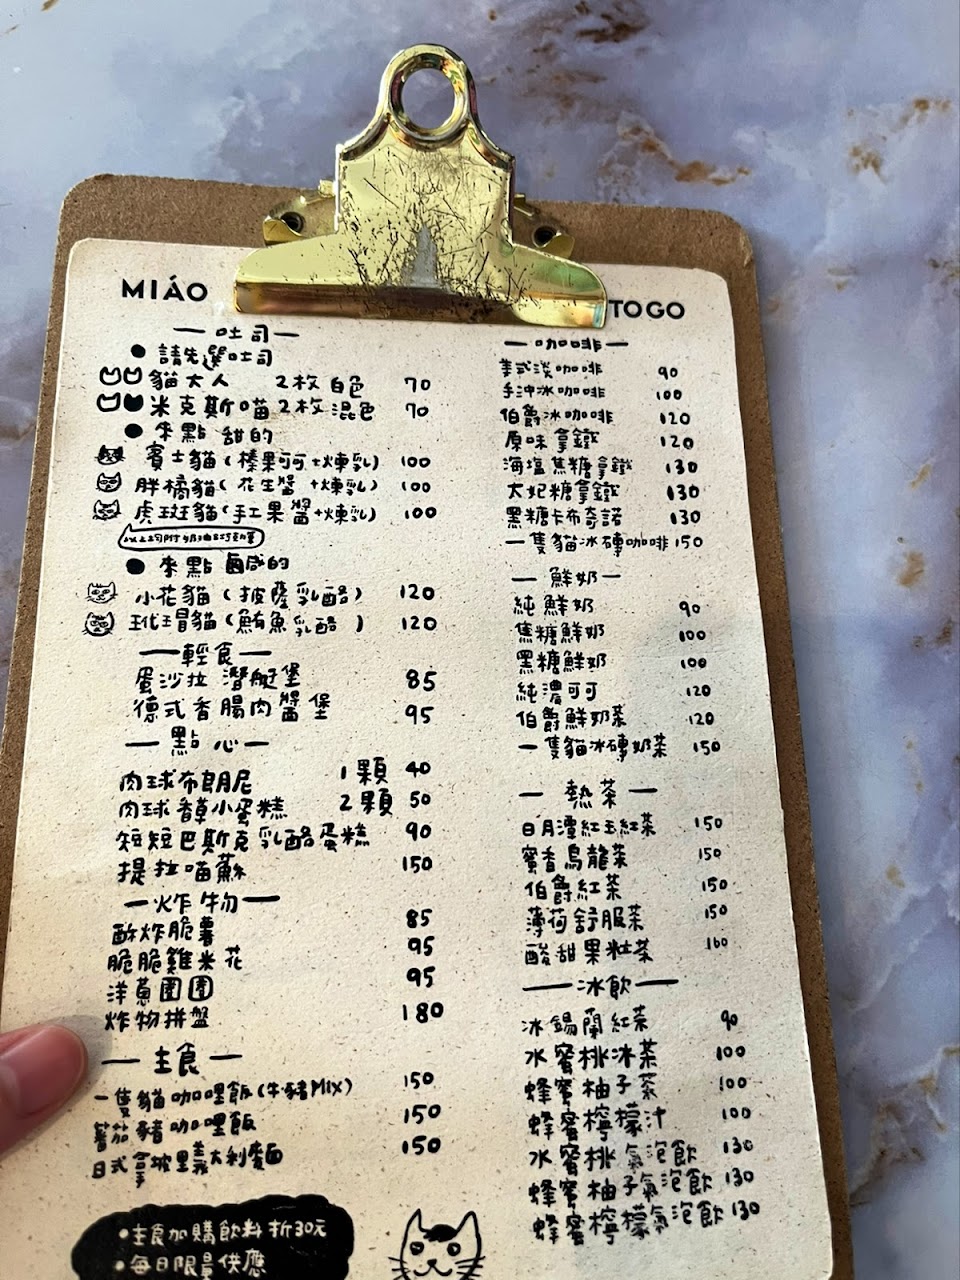 MIÁO
TOGO
吐司
● 請先選吐司
貓大人 2枚 白色 70
米克斯喵 2枚 混色 70
● 來點 甜的
賓士貓(榛果可可+煉乳) 100
胖橘貓(花生醬+煉乳) 100
虎斑貓(手工果醬+煉乳) 100
● 來點 鹹的
小花貓(披薩乳酪) 120
玳瑁貓(鮪魚乳酪) 120
輕食
蛋沙拉潛艇堡 85
德式香腸肉醬堡 95
點心
肉球布朗尼 1顆 40
肉球香草小蛋糕 2顆 50
短短巴斯克乳酪蛋糕 90
提拉喵蘇 150
炸物
酥炸脆薯 85
脆脆雞米花 95
洋蔥圈圈 95
炸物拼盤 180
主食
一隻貓咖哩飯(牛豬Mix) 150
蕃茄豬咖哩飯 150
日式拿坡里義大利麵 150
•主食加購飲料折30元
•每日限量供應
咖啡
美式淡咖啡 90
手沖冰咖啡 100
伯爵冰咖啡 120
原味拿鐵 120
海塩焦糖拿鐵 130
太妃糖拿鐵 130
黑糖卡布奇諾 130
一隻貓冰磚咖啡 150
鮮奶
純鮮奶 90
焦糖鮮奶 100
黑糖鮮奶 100
純濃可可 120
伯爵鮮奶茶 120
一隻貓冰磚奶茶 150
熱茶
日月潭紅玉紅茶 150
蜜香烏龍茶 150
伯爵紅茶 150
薄荷舒服茶 150
酸甜果粒茶 160
冰飲
冰錫蘭紅茶 90
水蜜桃冰茶 100
蜂蜜柚子茶 100
蜂蜜檸檬汁 100
水蜜桃氣泡飲 130
蜂蜜柚子氣泡飲 130
蜂蜜檸檬氣泡飲 130